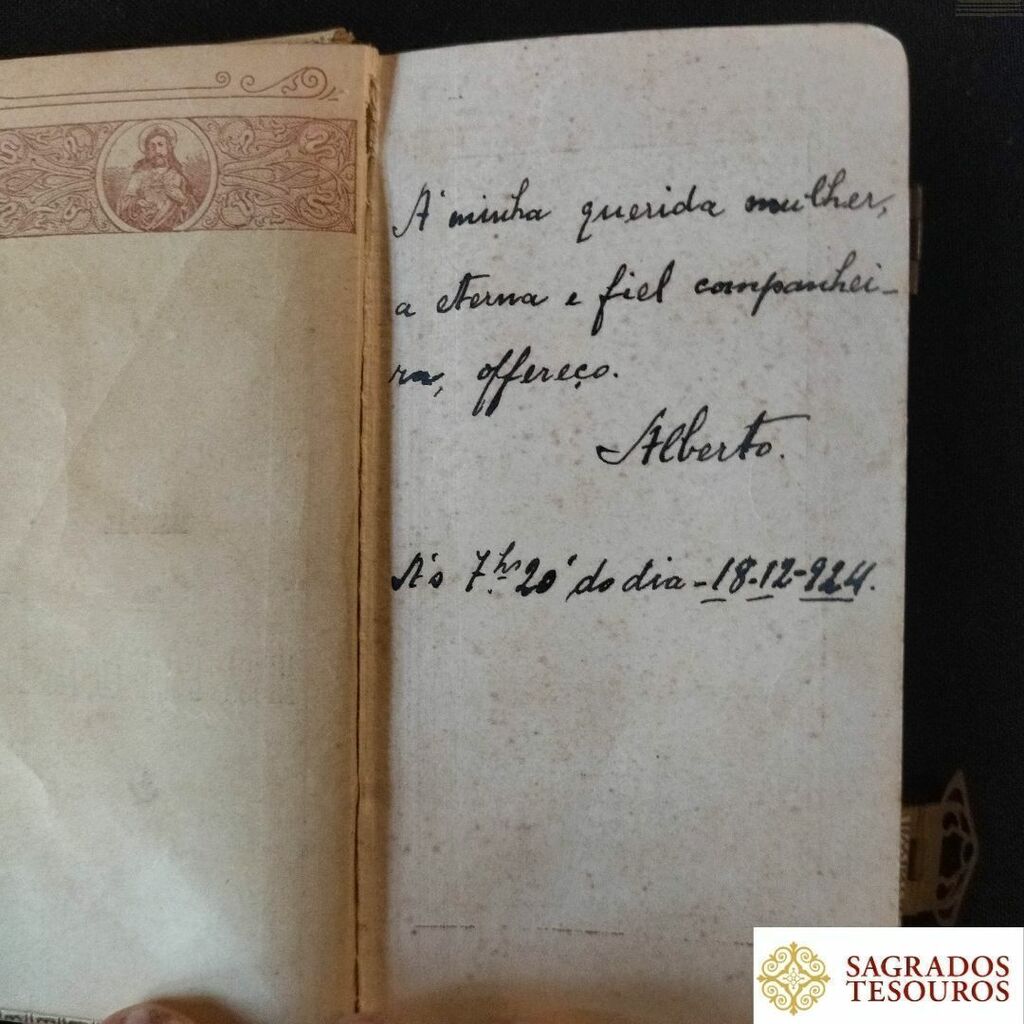 A' minha querida mulher,
a eterna e fiel companhei-
ra, offereço.
Alberto.
A's 7.hs 20' do dia - 18-12-924.
SAGRADOS
TESOUROS